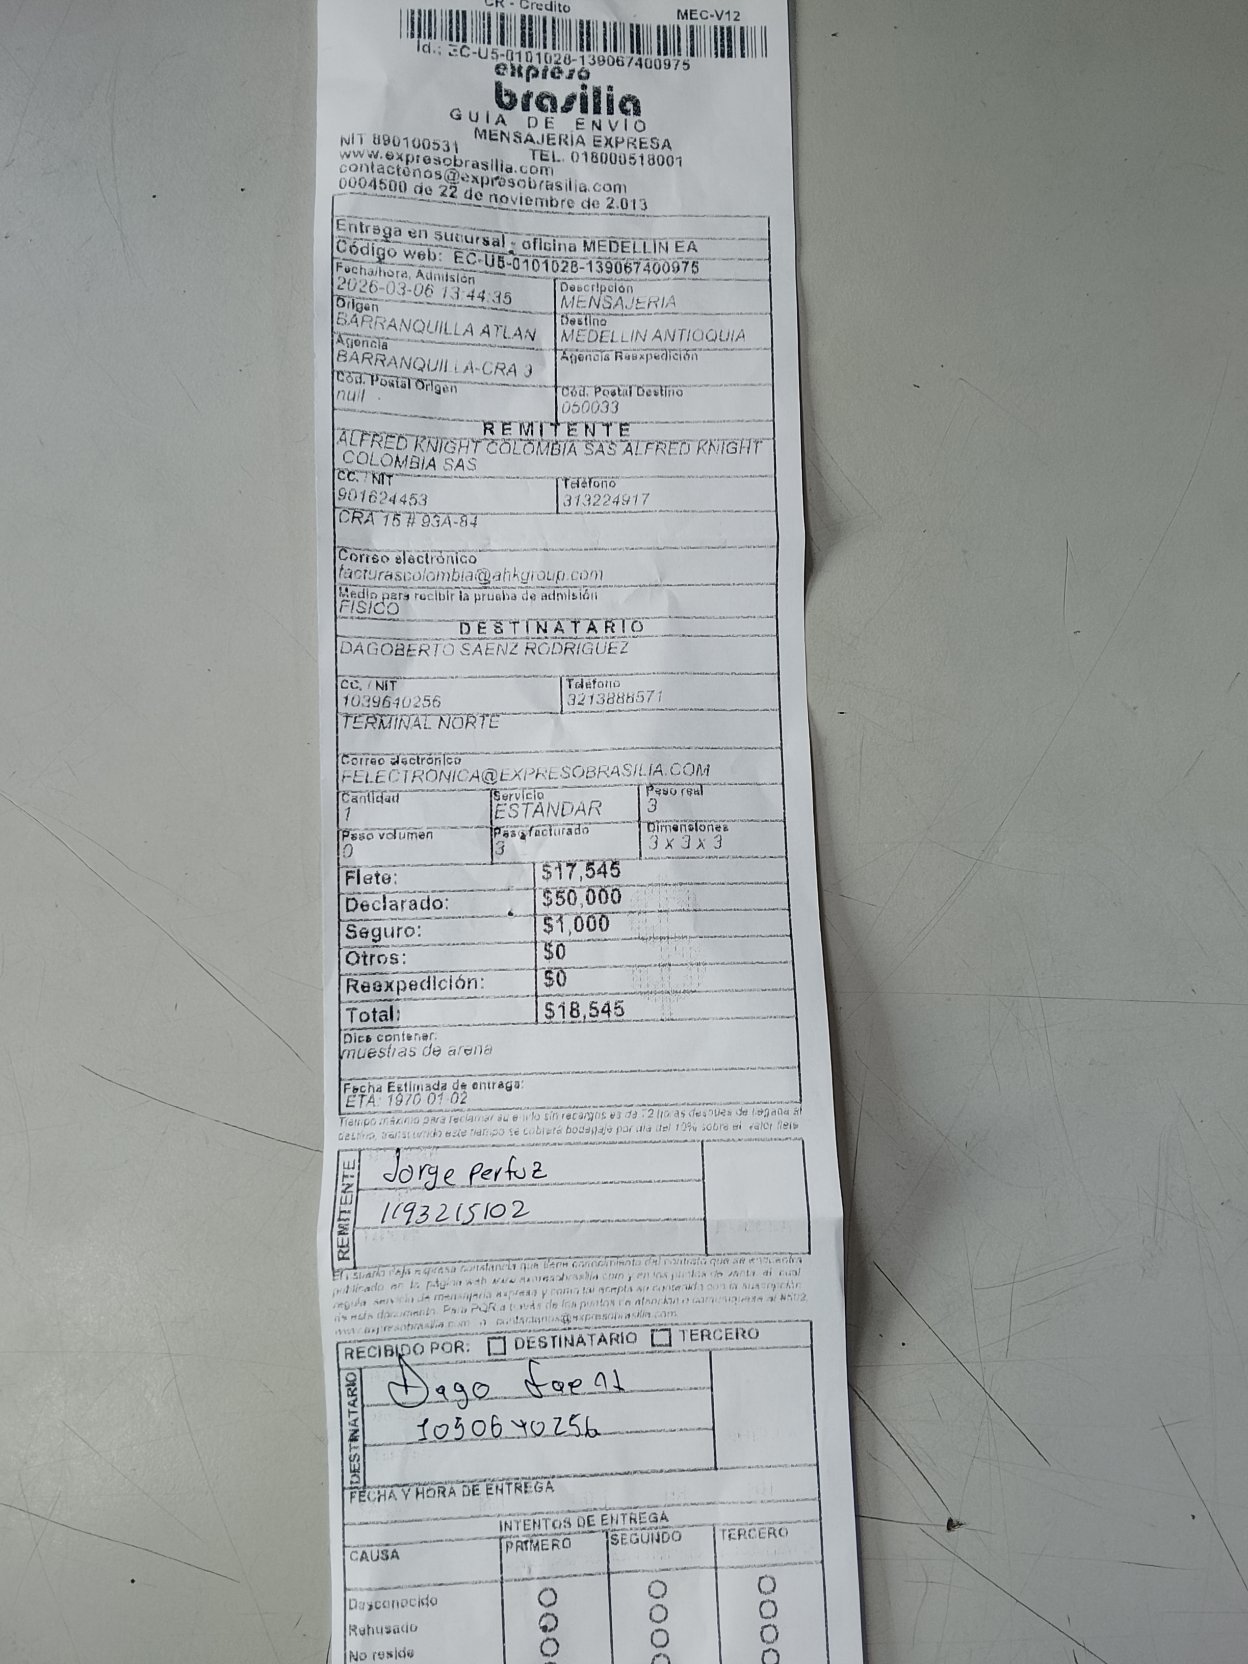 CR - Credito MEC-V12
Id.: EC-U5-0101028-139067400975
expreso
brasilia
GUIA DE ENVIO
MENSAJERIA EXPRESA
NIT 890100531 TEL. 018000518001
www.expresobrasilia.com
contactenos@expresobrasilia.com
0004500 de 22 de noviembre de 2.013
Entrega en sucursal - oficina MEDELLIN EA
Código web: EC-U5-0101028-139067400975
Fecha/hora, Admisión Descripción
2026-03-06 13:44:35 MENSAJERIA
Origen Destino
BARRANQUILLA ATLAN MEDELLIN ANTIOQUIA
Agencia Agencia Reexpedición
BARRANQUILLA-CRA 3
Cód. Postal Origen Cód. Postal Destino
null 050033
REMITENTE
ALFRED KNIGHT COLOMBIA SAS ALFRED KNIGHT
COLOMBIA SAS
CC. / NIT Teléfono
901624453 313224917
CRA 15 # 93A-84
Correo electrónico
facturascolombia@ahkgroup.com
Medio para recibir la prueba de admisión
FISICO
DESTINATARIO
DAGOBERTO SAENZ RODRIGUEZ
CC. / NIT Teléfono
1039640256 3213888571
TERMINAL NORTE
Correo electrónico
FELECTRONICA@EXPRESOBRASILIA.COM
Cantidad Servicio Peso real
1 ESTANDAR 3
Peso volumen Peso facturado Dimensiones
0 3 3 x 3 x 3
Flete: $17,545
Declarado: $50,000
Seguro: $1,000
Otros: $0
Reexpedición: $0
Total: $18,545
Dice contener:
muestras de arena
Fecha Estimada de entrega:
ETA: 1970 01 02
Tiempo máximo para reclamar su envío sin recargos es de 72 horas despues de llegada al
destino, transcurrido este tiempo se cobrará bodegaje por día del 10% sobre el valor flete
REMITENTE
Jorge Perfuz
1193215102
El usuario deja expresa constancia que tiene conocimiento del contrato que se encuentra
publicado en la página web www.expresobrasilia.com y en los puntos de venta, el cual
regula servicio de mensajería expresa y como tal acepta su contenido con la suscripción
de este documento. Para PQR a través de los puntos de atención o comuníquese al #502,
www.expresobrasilia.com o contactanos@expresobrasilia.com
RECIBIDO POR: DESTINATARIO TERCERO
DESTINATARIO
Dago Saenz
1050640256
FECHA Y HORA DE ENTREGA
INTENTOS DE ENTREGA
CAUSA PRIMERO SEGUNDO TERCERO
Desconocido
Rehusado
No reside